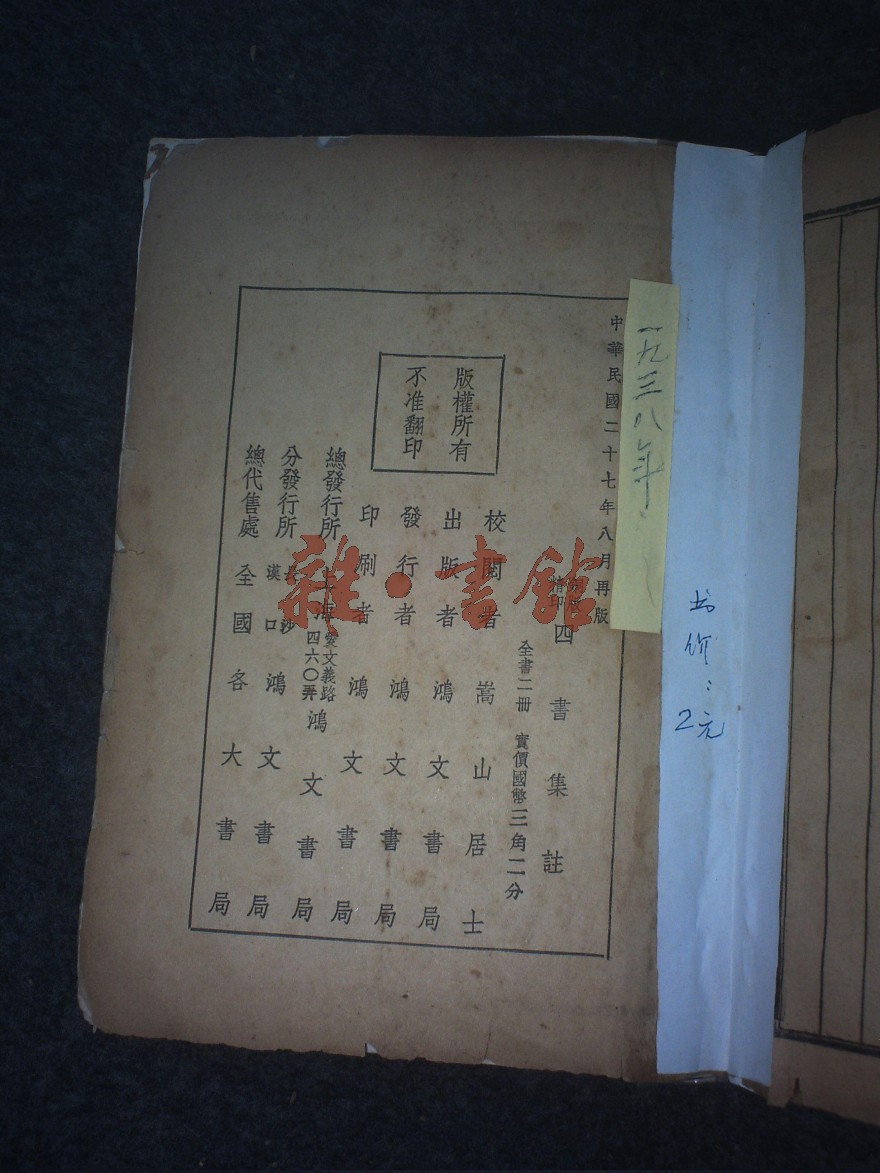 中華民國二十七年八月再版
精印
四書集註
全書二冊 實價國幣三角二分
版權所有
不准翻印
校閱者 嵩山居士
出版者 鴻文書局
發行者 鴻文書局
印刷者 鴻文書局
總發行所 上海愛文義路四六〇弄 鴻文書局
分發行所 長沙 漢口 鴻文書局
總代售處 全國各大書局
一九三八年
书价：2元
雜·書館